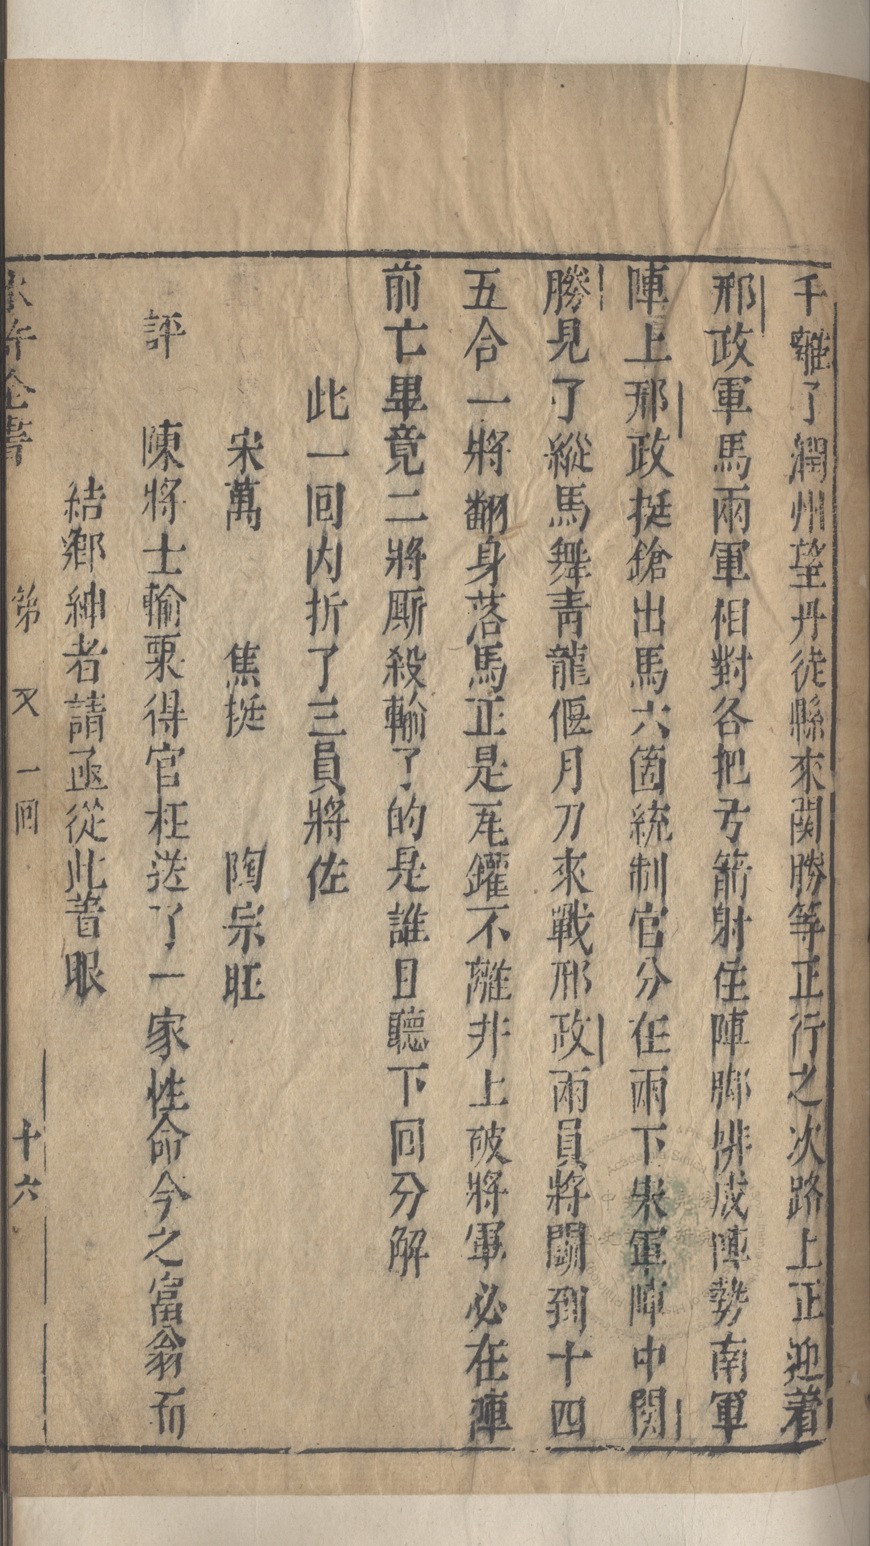 千離了潤州望丹徒縣來関勝等正行之次路上正迎着
邢政軍馬兩軍相對各把弓箭射住陣脚排成陣勢南軍
陣上邢政挺鎗出馬六箇統制官分在兩下宋軍陣中関
勝見了縱馬舞青龍偃月刀來戰邢政兩員將鬭到十四
五合一將翻身落馬正是瓦鑵不離井上破將軍必在陣
前亡畢竟二將厮殺輸了的是誰且聽下回分解
此一回内折了三員將佐
宋萬 焦挺 陶宗旺
評 陳將士輸粟得官枉送了一家性命今之富翁而
結鄉紳者請亟從此着眼
水滸全書 第 一回 十六